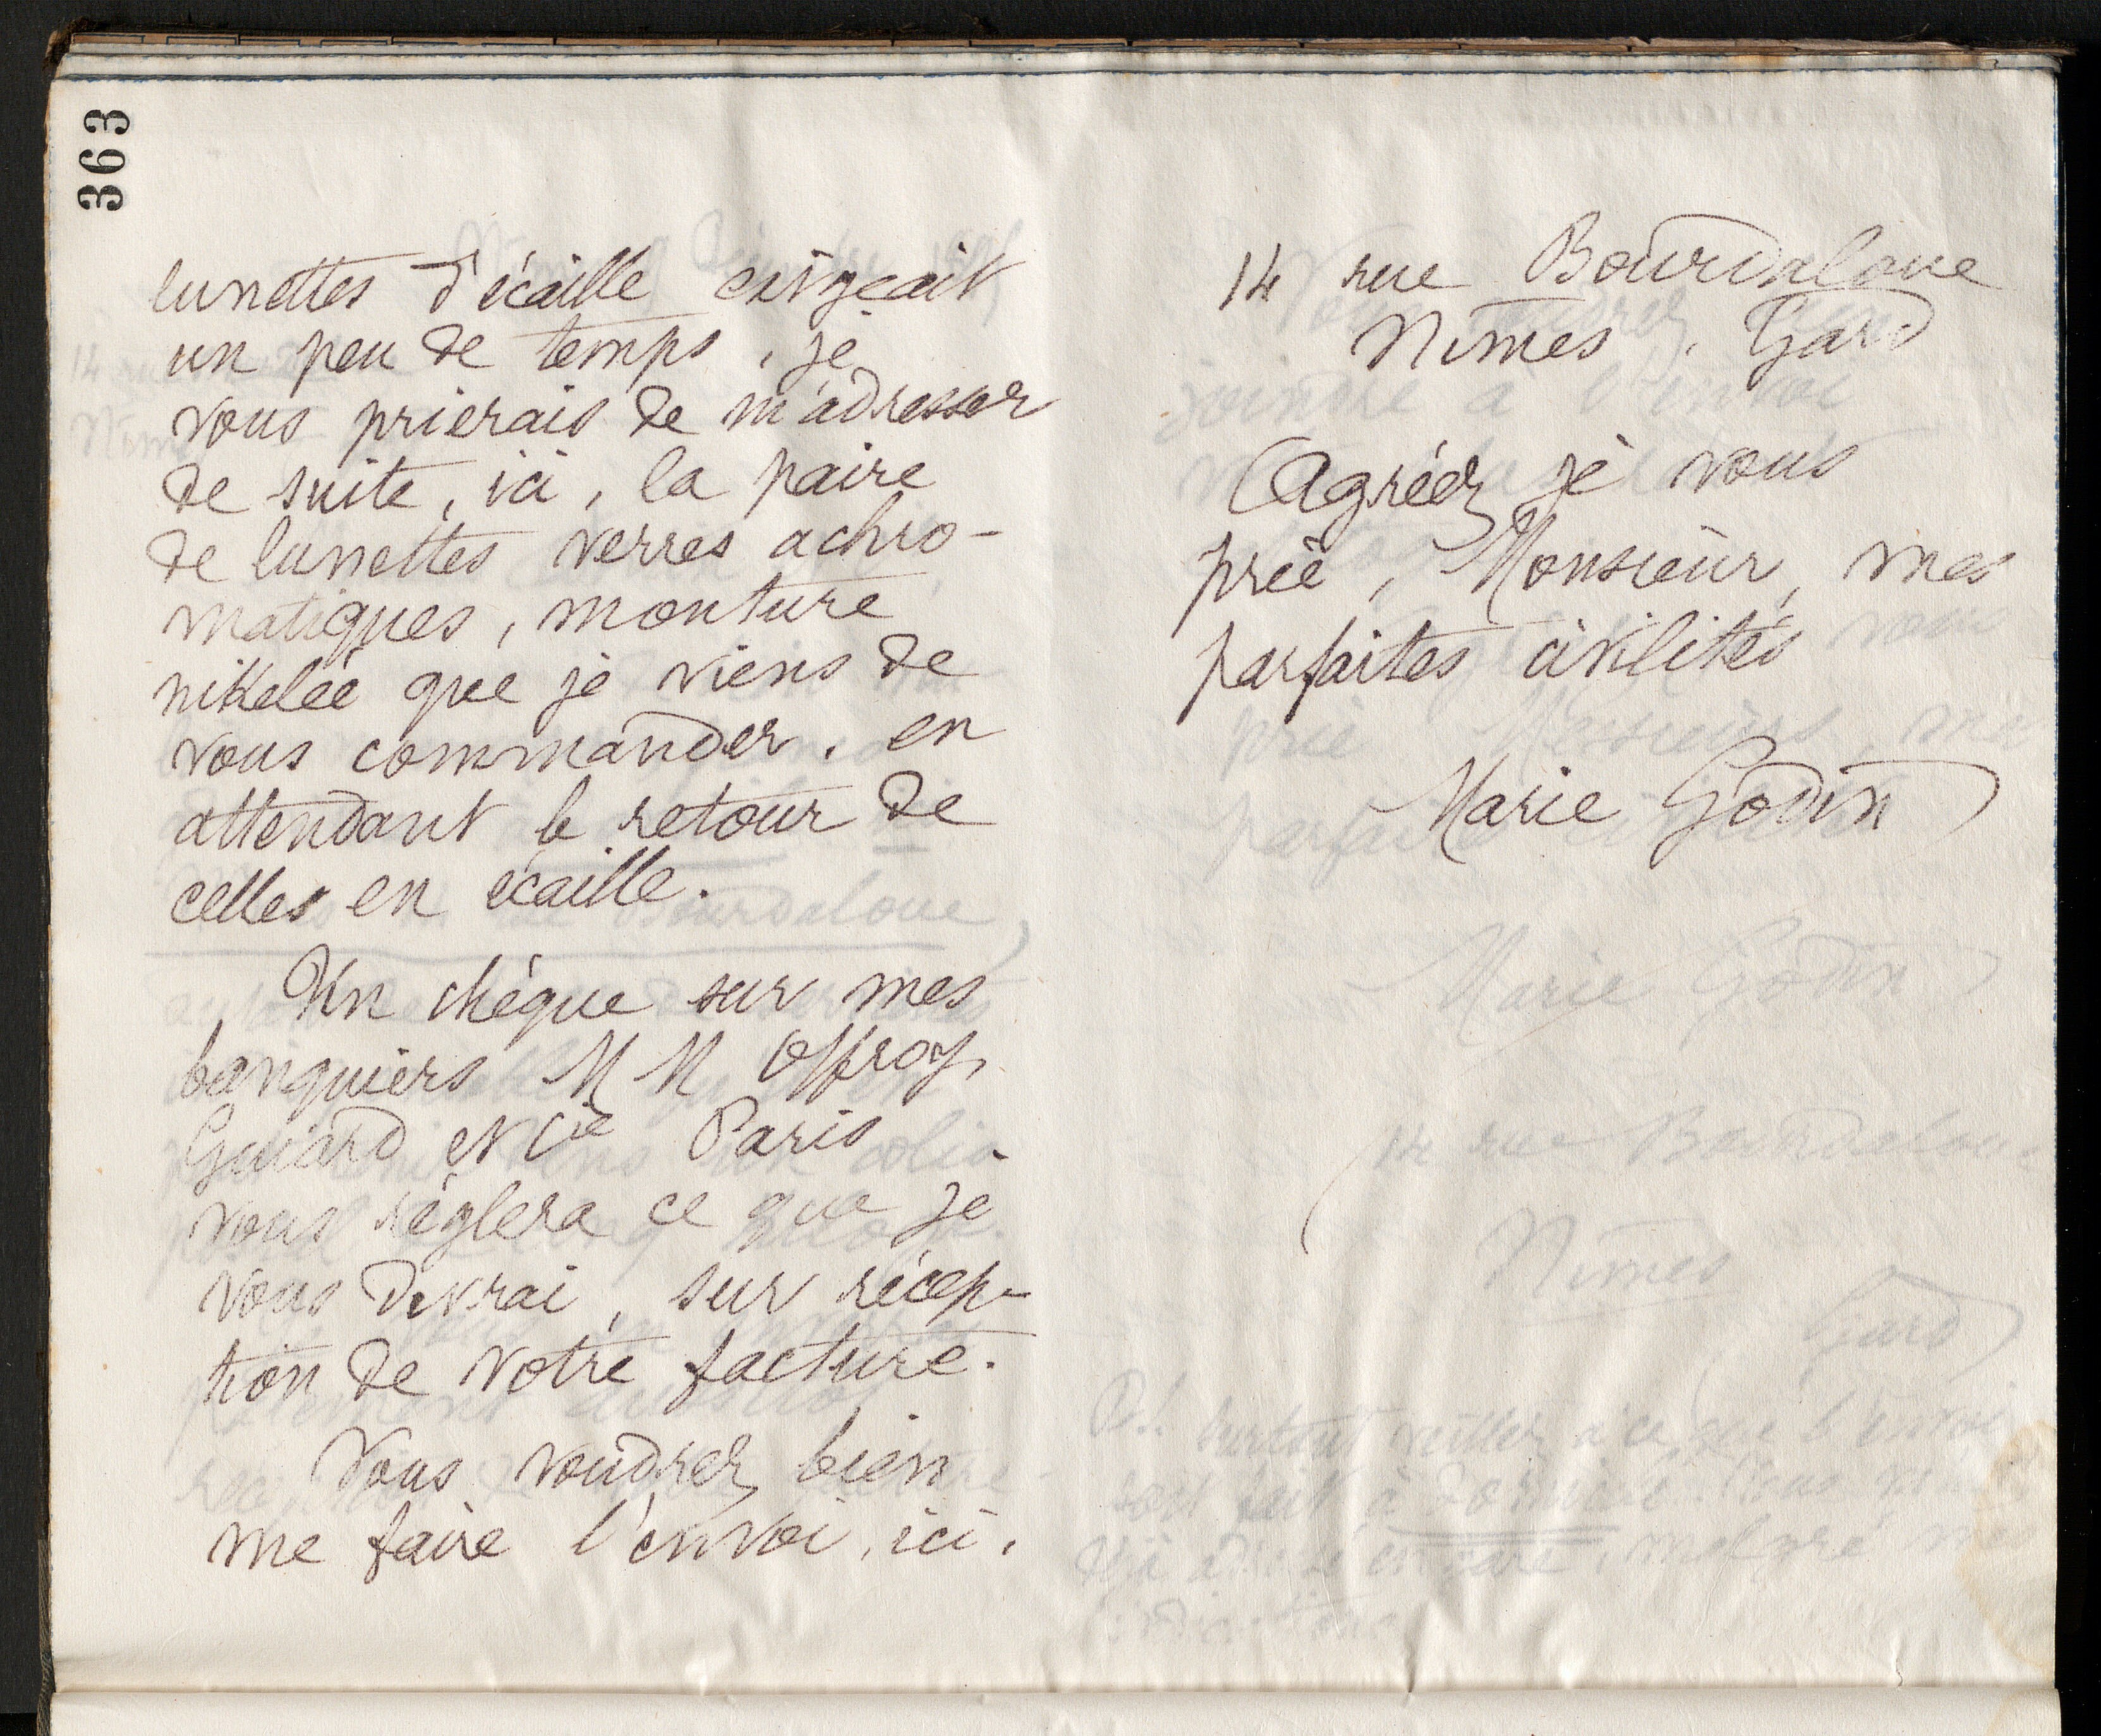 363
lunettes d'écaille exigeait
un peu de temps, je
vous prierais de m'adresser
de suite, ici, la paire
de lunettes verres achro-
matiques, monture
nikelée que je viens de
vous commander, en
attendant le retour de
celles en écaille.
Un chéque sur mes
banquiers M M Offroy,
Guiard et Cie Paris
vous réglera ce que je
vous devrai, sur récep-
tion de votre facture.
Vous voudrez bien
me faire l'envoi, ici,
14 rue Bourdaloue
Nîmes, Gard
Agréez je vous
prie, Monsieur, mes
parfaites civilités
Marie Godin